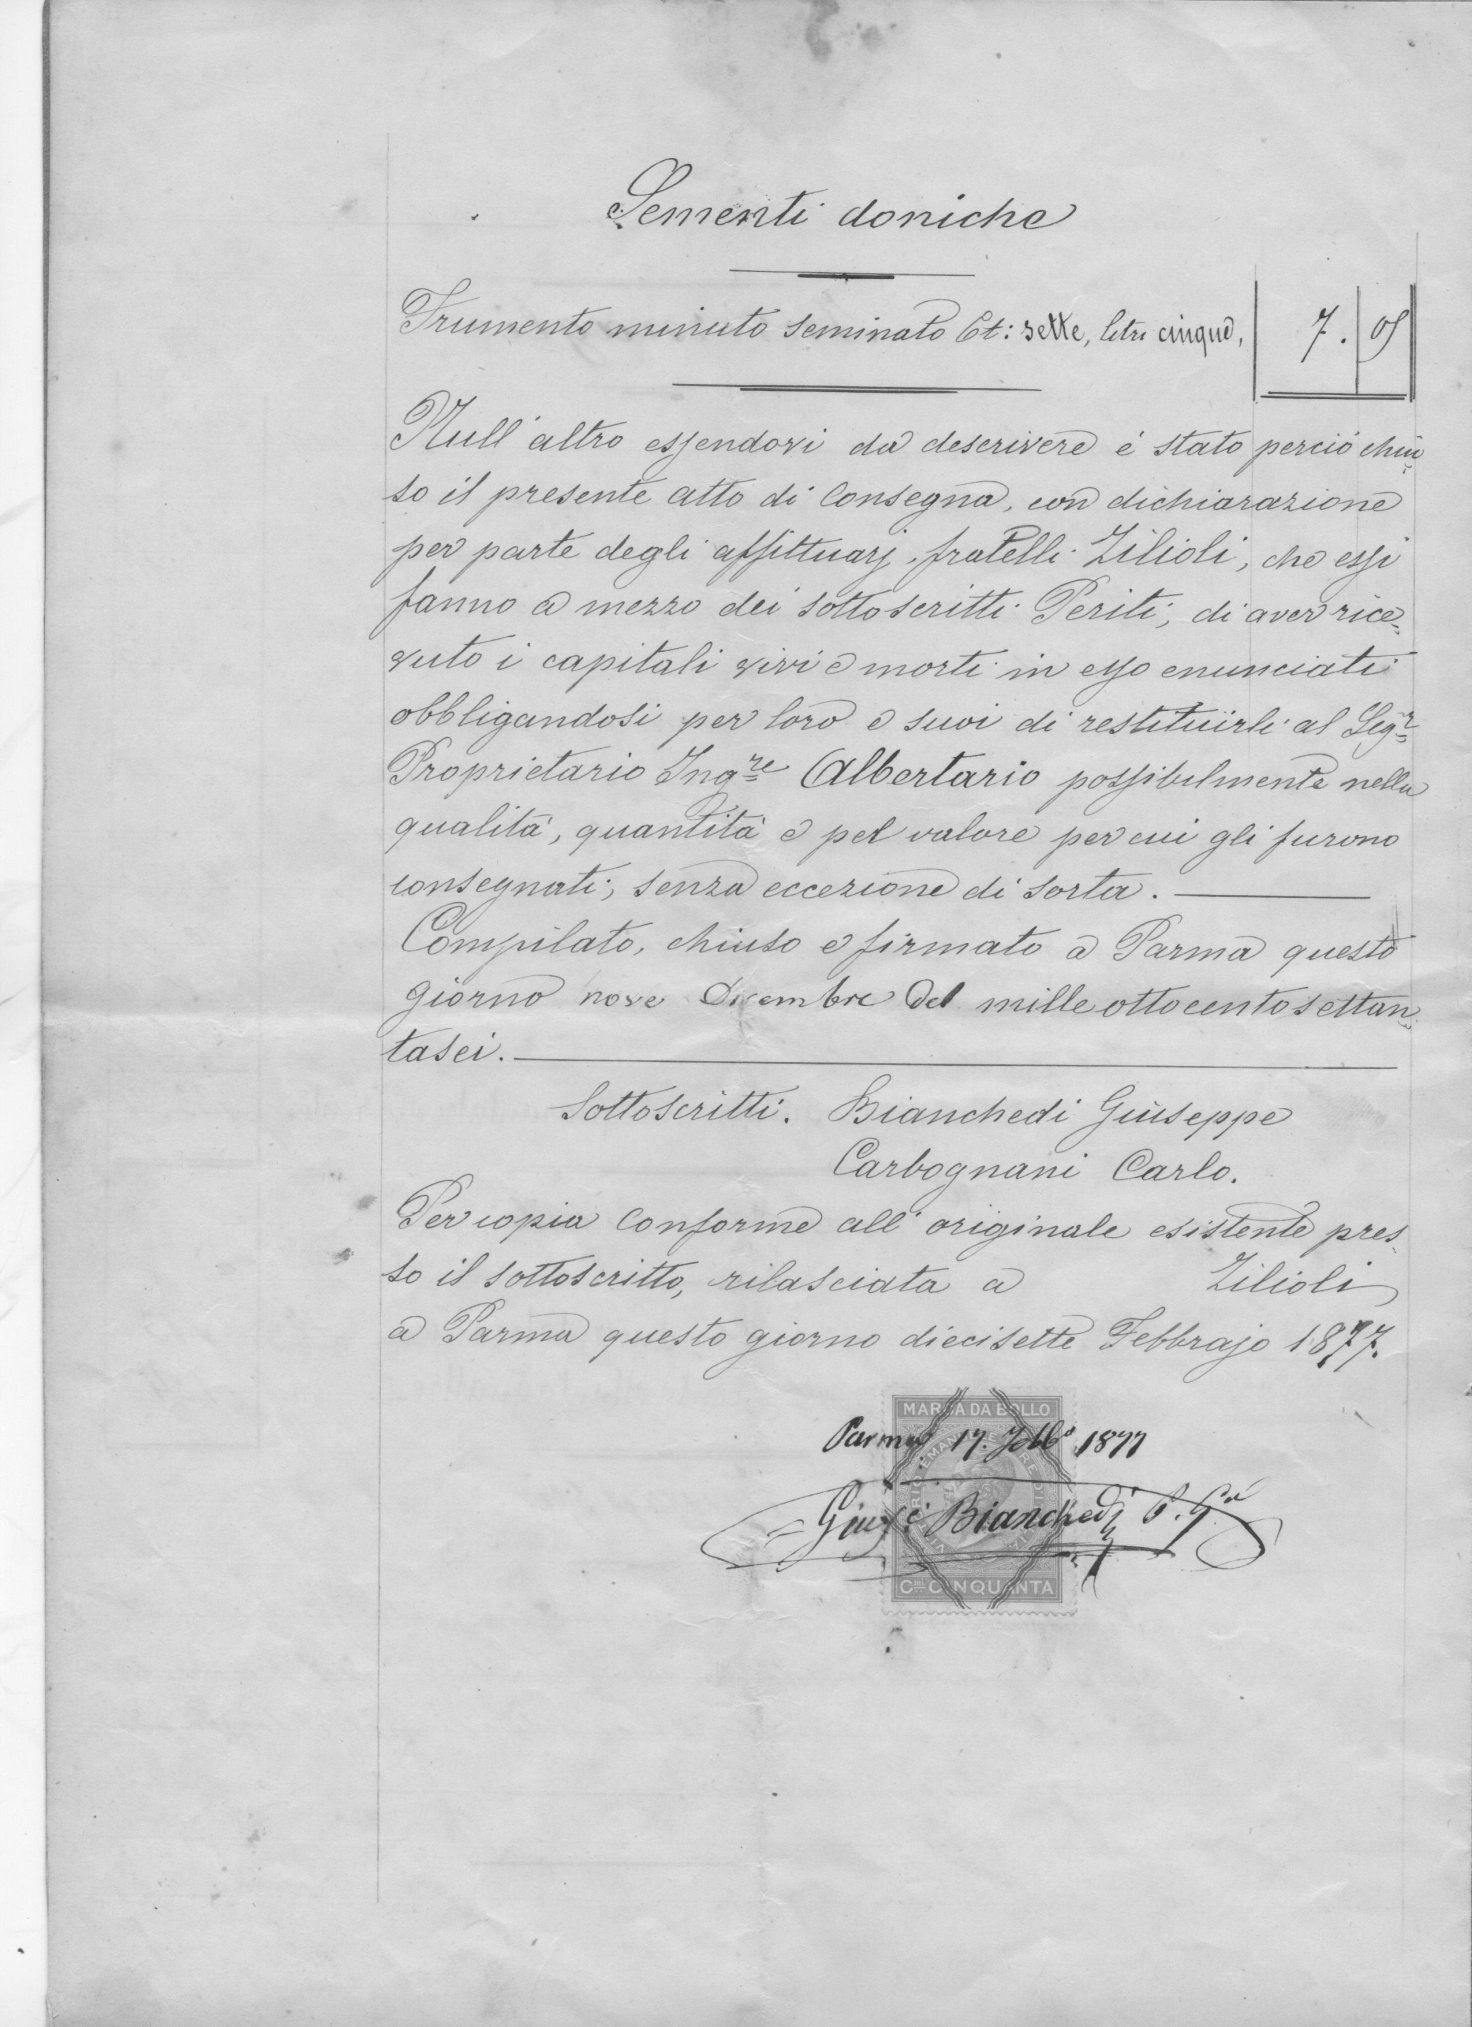 Sementi doniche
Frumento minuto seminato Et: sette, litri cinque, 7. 05
Null'altro essendovi da descrivere è stato perciò chiu
so il presente atto di Consegna, con dichiarazione
per parte degli affittuarj fratelli Zilioli, che essi
fanno a mezzo dei sottoscritti Periti, di aver rice-
vuto i capitali vivi e morti in esso enunciati
obbligandosi per loro e suoi di restituirli al Sigr
Proprietario Ingre Albertario possibilmente nella
qualità, quantità e pel valore per cui gli furono
consegnati, senza eccezione di sorta.
Compilato, chiuso e firmato a Parma questo
giorno nove Dicembre del mille ottocento settan
tasei.
Sottoscritti. Bianchedi Giuseppe
Carbognani Carlo.
Per copia conforme all'originale esistente pres-
so il sottoscritto, rilasciata a Zilioli
a Parma questo giorno diecisette Febbrajo 1877.
MARCA DA BOLLO
Parma 17. Febbo 1877
Bianchedi
Cmi CINQUANTA